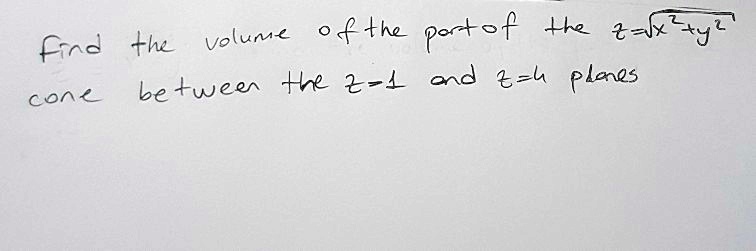 find the volume of the part of the z=√x²+y²
cone between the z=1 and z=4 planes